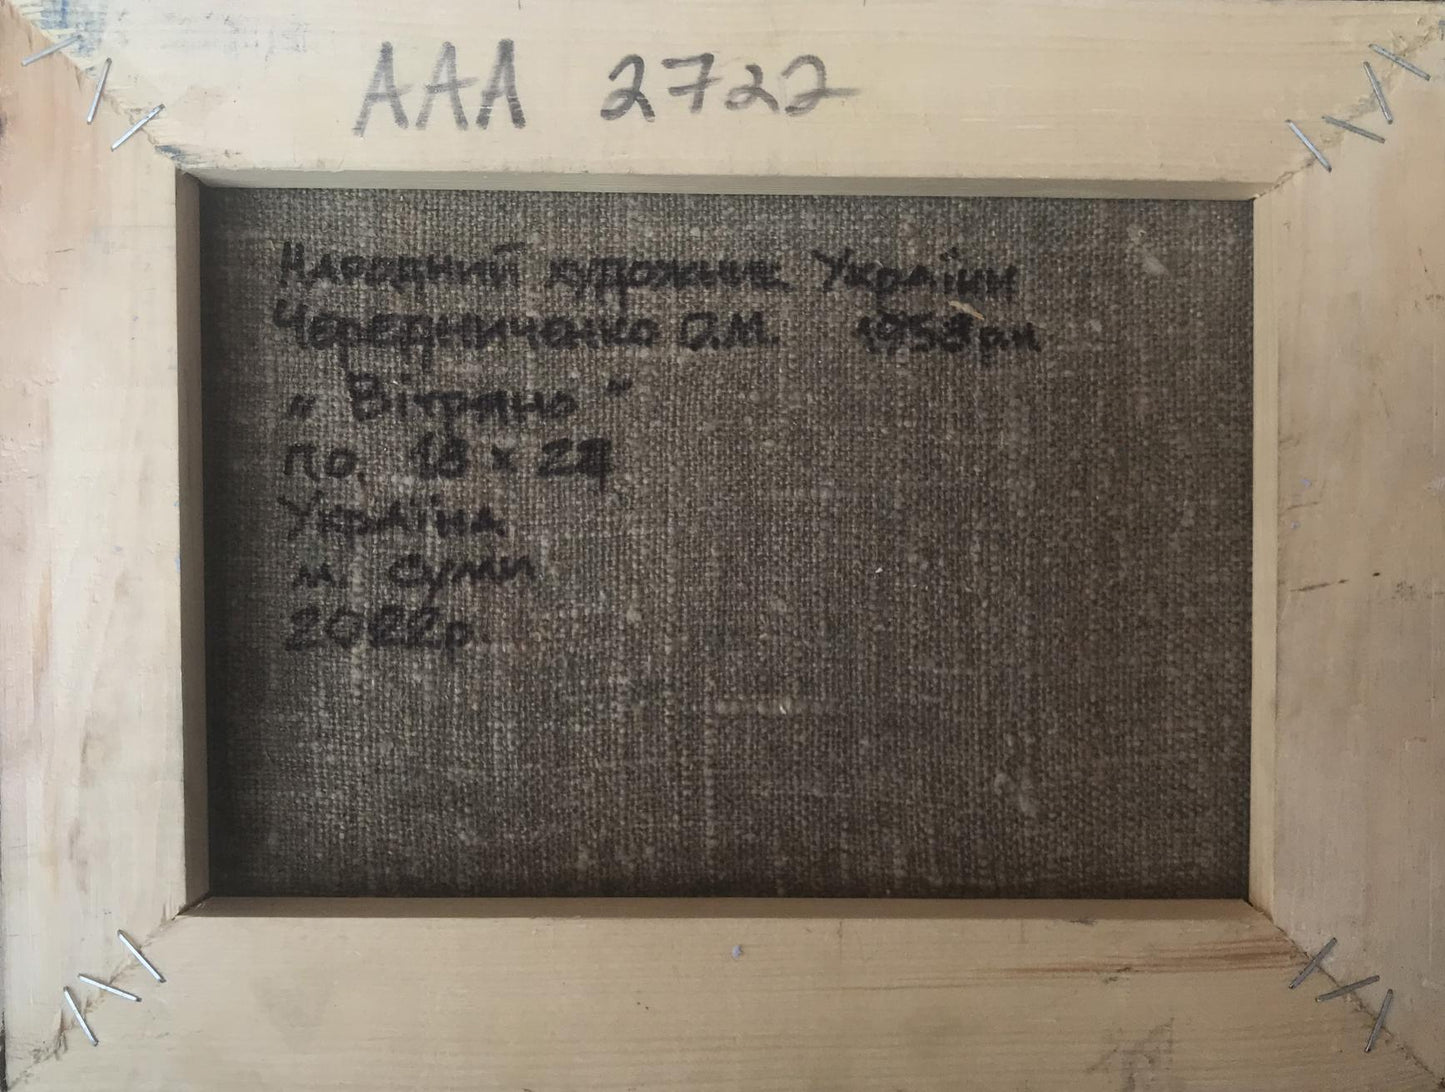 ААА 2722
Народний художник України
Чередниченко О.М. 1958 р.н
„ Вітряно "
по. 18 x 24
Україна
м. Суми
2022р.